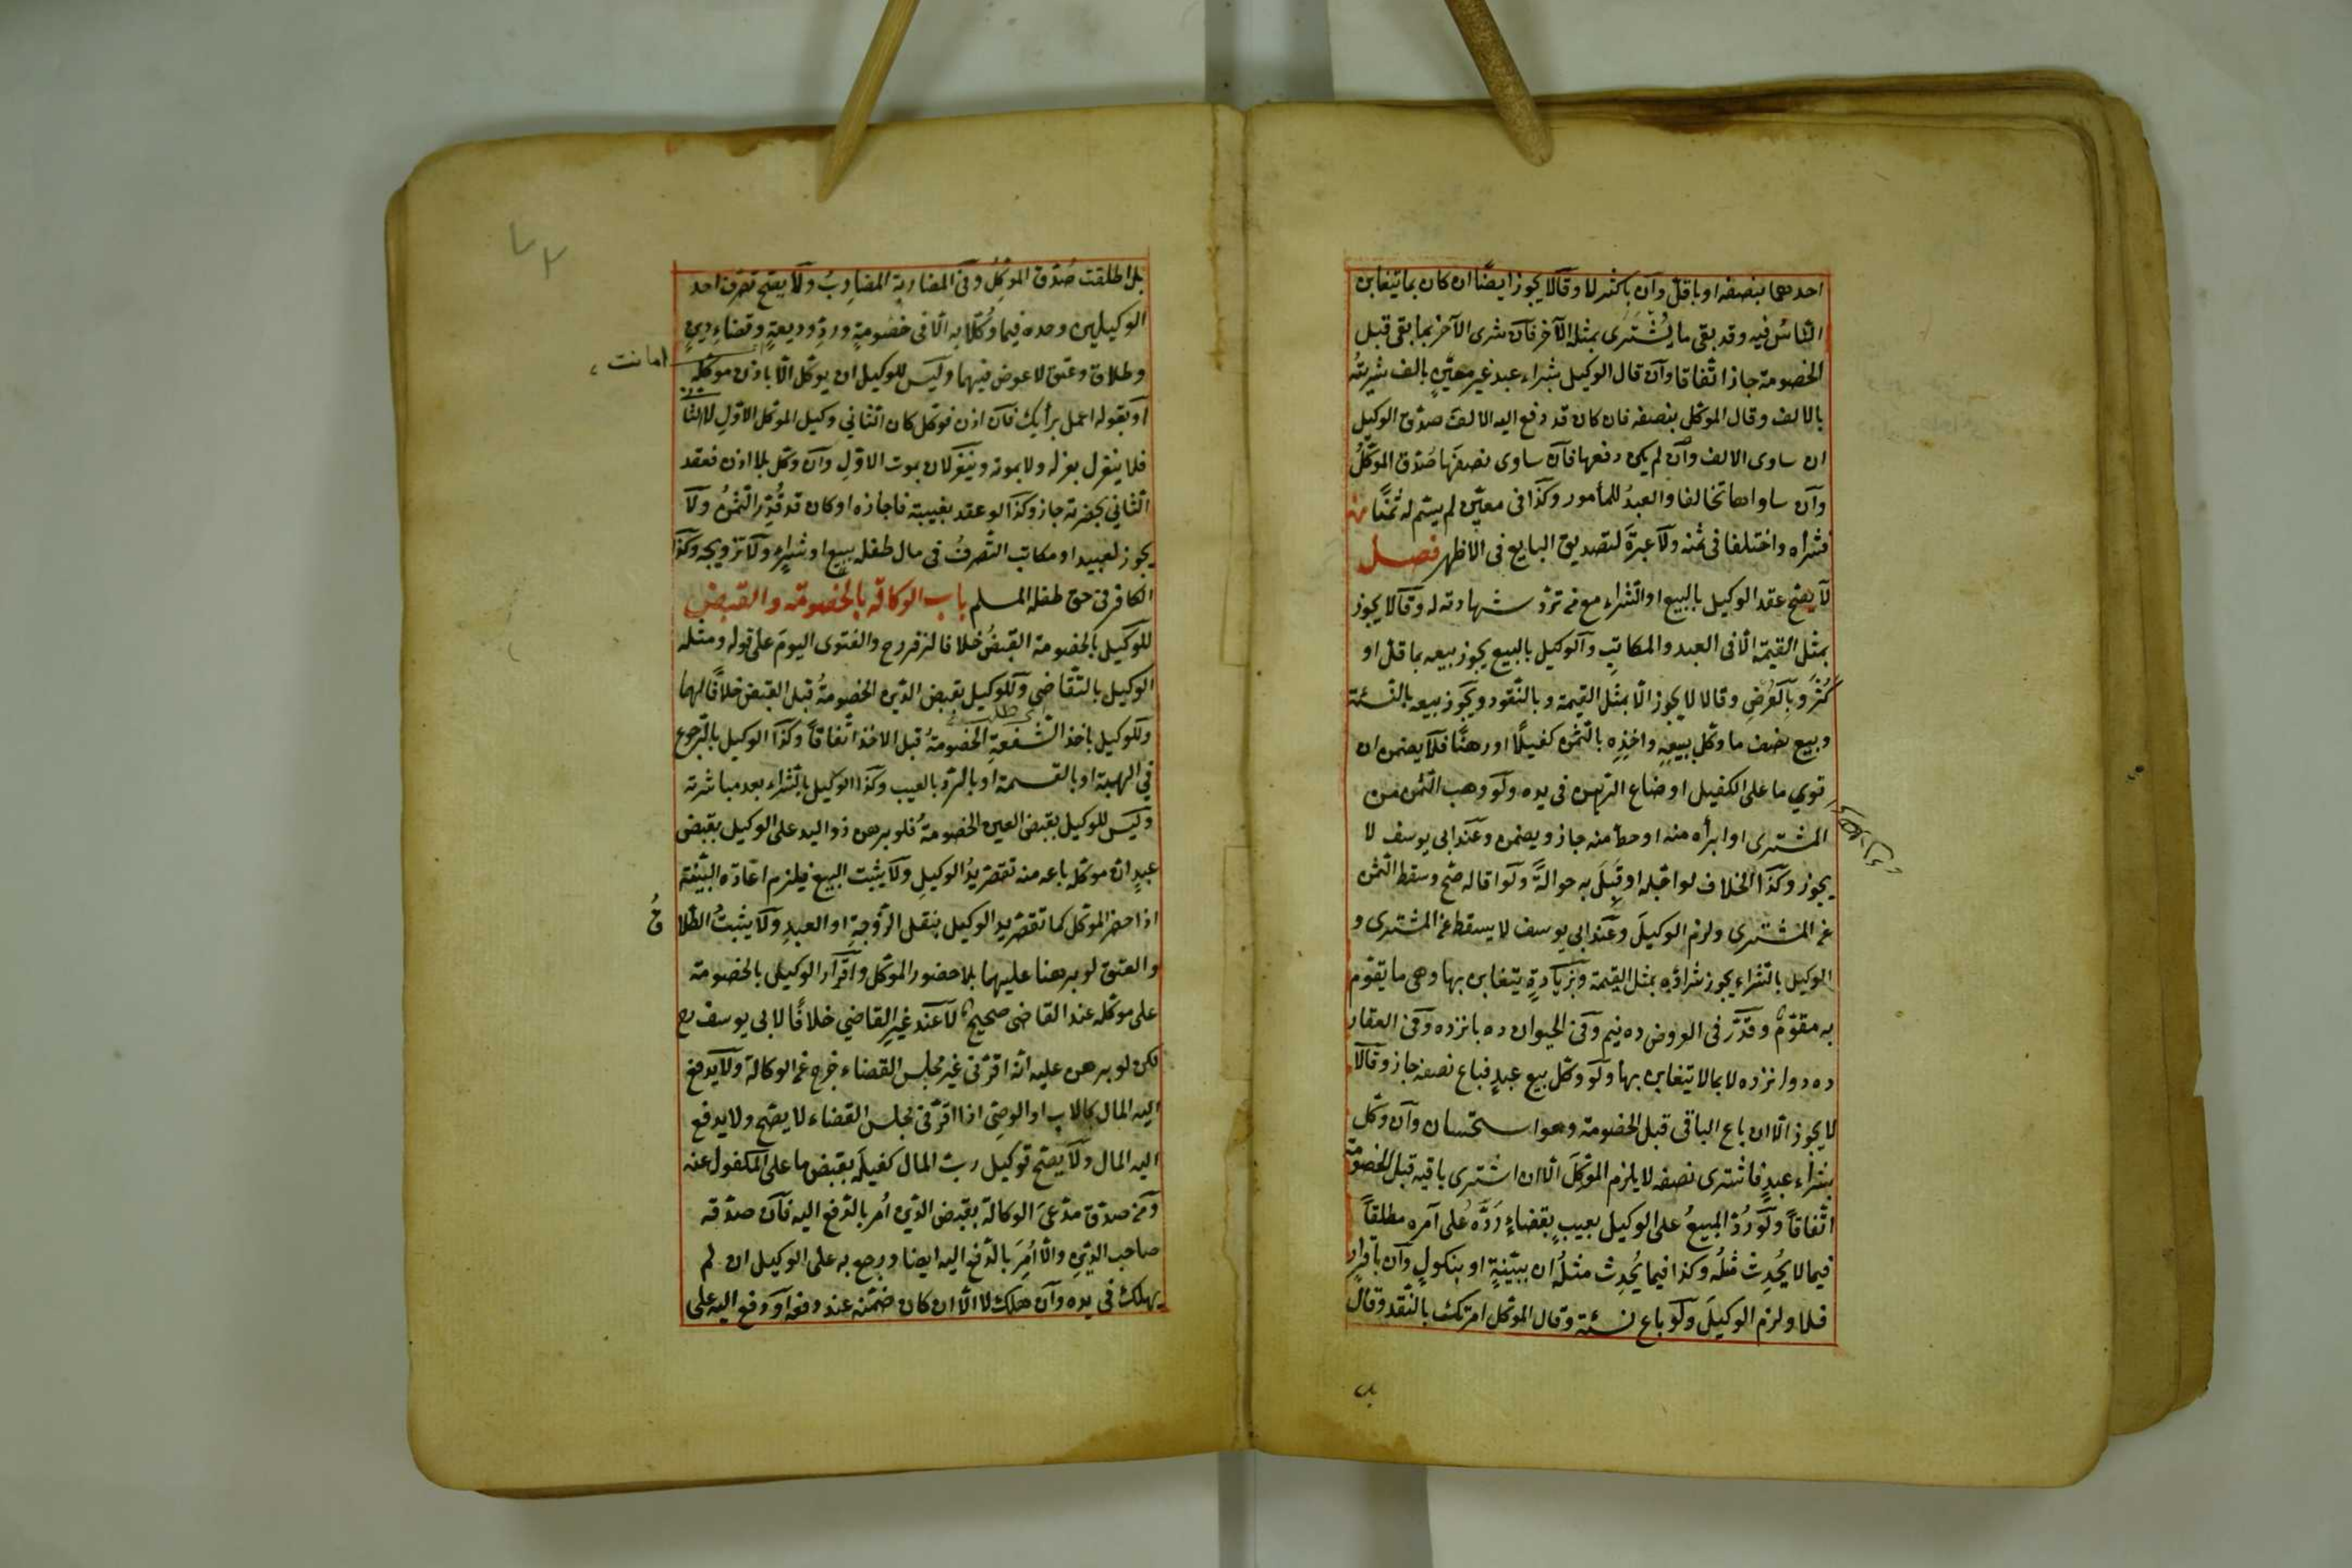 احدهما بنصفه او باقل وان باكثر لا وقالا يجوز ايضًا ان كان بما يتغابن
الناسُ فيه وقد بقى ما يُشتَرى بمثله الآخر فان شرى الآخر بما بقى قبل
الخصومة جاز اتفاقا وان قال الوكيل بشراء عبد غير معيَّنٍ بالف شريتُه
بالالف وقال الموكل بنصفه فان كان قد دفع اليه الالف صدّق الوكيل
ان ساوى الالف وان لم يكن دفعها فان ساوى نصفَها صُدّق الموكِّلُ
وان ساواها تخالفا والعبدُ للمأمور وكذا فى معيّن لم يسمّ له ثمنًا
فشراه واختلفا فى ثمنه ولا عبرةَ لتصديق البايع فى الاظهر فصل
لا يصح عقد الوكيل بالبيع او الشراء مع من تردّ شهادته له وقالا يجوز
بمثل القيمة الّا فى العبد والمكاتبِ والوكيل بالبيع يجوز بيعه بما قلّ او
كثُرَ وبالعَرْضِ وقالا لا يجوز الّا بمثل القيمة وبالنّقود ويجوز بيعه بالنسئة
وبيع نصف ما وكّل ببيعِهِ واخذِه بالثمن كفيلًا او رهنًا فلا يضمن ان
توي ما على الكفيل او ضاع الرهن فى يده ولو وهب الثمن من
المشترى او ابرأه منه او حطّ منه جاز ويضمن وعند ابى يوسف لا
يجوز وكذا الخلاف لو اجّله او قبِلَ به حوالةً ولو اقاله صحّ وسقط الثمن
عن المشترى ولزم الوكيلَ وعند ابى يوسف لا يسقط عن المشترى و
الوكيل بالشراء يجوز شراؤه بمثل القيمة وبزيادةٍ يتغابن بها وهى ما يقوّم
به مقوّمٌ وقدّر فى العروض ده نيم وفى الحيوان ده يازده وفى العقار
ده دوازده لا بما لا يتغابن بها ولو وكّل ببيع عبدٍ فباع نصفه جاز وقالا
لا يجوز الّا ان باع الباقى قبل الخصومة وهو استحسان وان وكّل
بشراء عبدٍ فاشترى نصفه لا يلزم الموكِلَ الّا ان اشترى باقيه قبل الخصومة
اتّفاقاً ولو رُدَّ المبيعُ على الوكيل بعيبٍ بقضاءٍ رَدَّه على آمره مطلقاً
فيما لا يَحْدِث مثلُه وكذا فيما يَحْدِث مثلُه ان ببيّنةٍ او بنكولٍ وان باقرارٍ
فلا ولزم الوكيلَ ولو باع نسئة وقال الموكل امرتك بالنّقد وقال
بل
بل اطلقت صُدّق الموكّلُ وفى المضاربة المضارِبُ ولا يصح تصرف احد
الوكيلين وحده فيما وُكّلا به الّا فى خصومةٍ وردِّ وديعةٍ وقضاءِ دينٍ
امانت
وطلاق وعتق لا عوض فيهما وليس للوكيل ان يوكّل الّا باذن موكّله
او بقوله اعمل برأيك فان اذن فوكّل كان الثاني وكيل الموكّل الاول لا الثا
فلا ينعزل بعزله ولا بموته وينعزلان بموت الاوّلِ وان وكّل بلا اذن فعقد
الثاني بحضرته جاز وكذا لو عقد بغيبته فاجازه او كان قد قُدِّر الثمنُ ولا
يجوز لعبيد او مكاتب التّصرفُ فى مال طفله ببيع او شراءٍ ولا تزويجه وكذا
الكافر فى حق طفله المسلم باب الوكالة بالخصومة والقبض
للوكيل بالخصومة القبضُ خلافا لزفر رح والفتوى اليومَ على قوله ومثله
الوكيل بالتّقاضي وللوكيل بقبض الدّين الخصومةُ قبل القبض خلافًا لهما
وللوكيل باخذ الشّفعةِ الخصومةُ قبل الاخذ اتّفاقاً وكذا الوكيل بالرّجوع
في الهبة او بالقسمة او بالردّ بالعيب وكذا الوكيل بالشراء بعد مباشرته
وليس للوكيل بقبض العين الخصومةُ فلو برهن ذو اليد على الوكيل بقبض
عبدٍ انّ موكّله باعه منه تقصر يدُ الوكيلِ ولا يثبت البيع فيلزم اعادة البيّنة
اذا حضر الموكّل كما تقصر يد الوكيل بنقل الزّوجةِ او العبدِ ولا يثبتُ الطّلا
قُ
والعتق لو برهنا عليهما بلا حضور الموكّل واقرار الوكيل بالخصومة
على موكّله عند القاضى صحيحٌ لا عند غيرِ القاضي خلافًا لابى يوسف رح
لكن لو برهن عليه انّه اقرّ فى غير مجلس القضاء خرج عن الوكالة ولا يدفع
اليه المال كالاب او الوصى اذا اقرّ فى مجلس القضاء لا يصحّ ولا يدفع
اليه المال ولا يصح توكيل ربّ المال كفيلَه بقبض ما على المكفول عنه
ومن صدّق مدّعىَ الوكالة بقبض الدّين اُمر بالدّفع اليه فان صدّقه
صاحب الدّينِ والّا اُمِرَ بالدّفع اليه ايضا ورجع به على الوكيل ان لم
يهلك فى يده وان هلك لا الّا ان كان ضمّنه عند دفعه او دفع اليه على